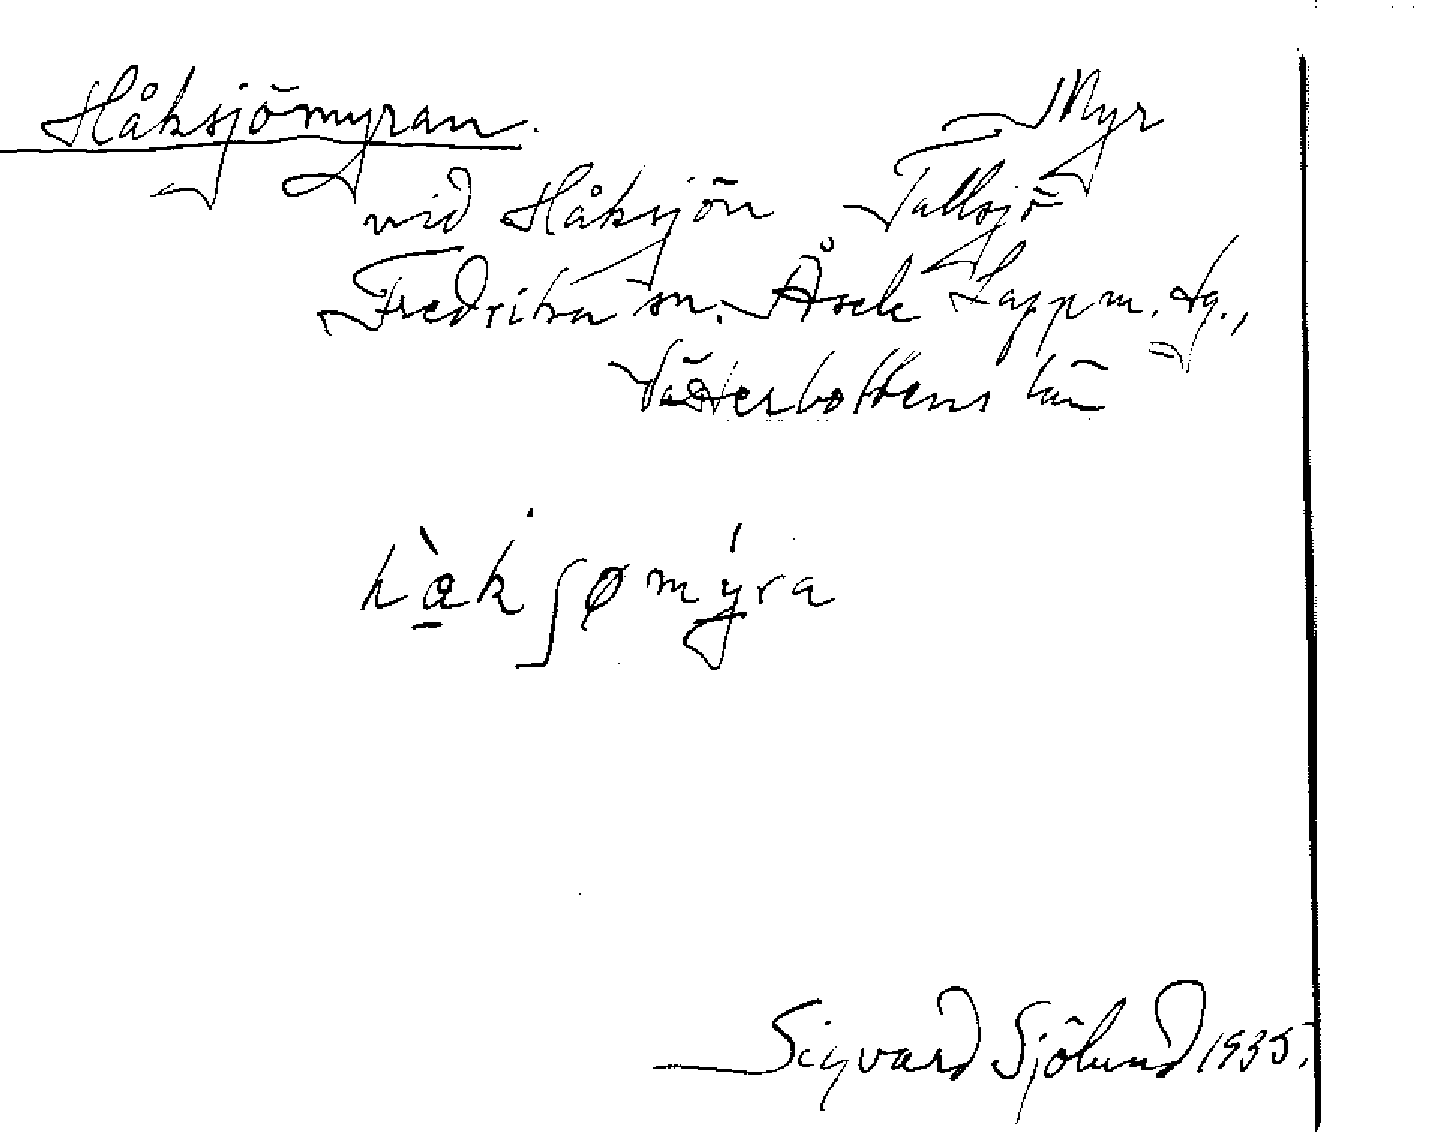 Håksjömyran. Myr
vid Håksjön Tallsjö
Fredrika sn. Åsele Lappm. tg.,
Västerbottens län
hàkʃømýra
Sigvard Sjölund 1935.